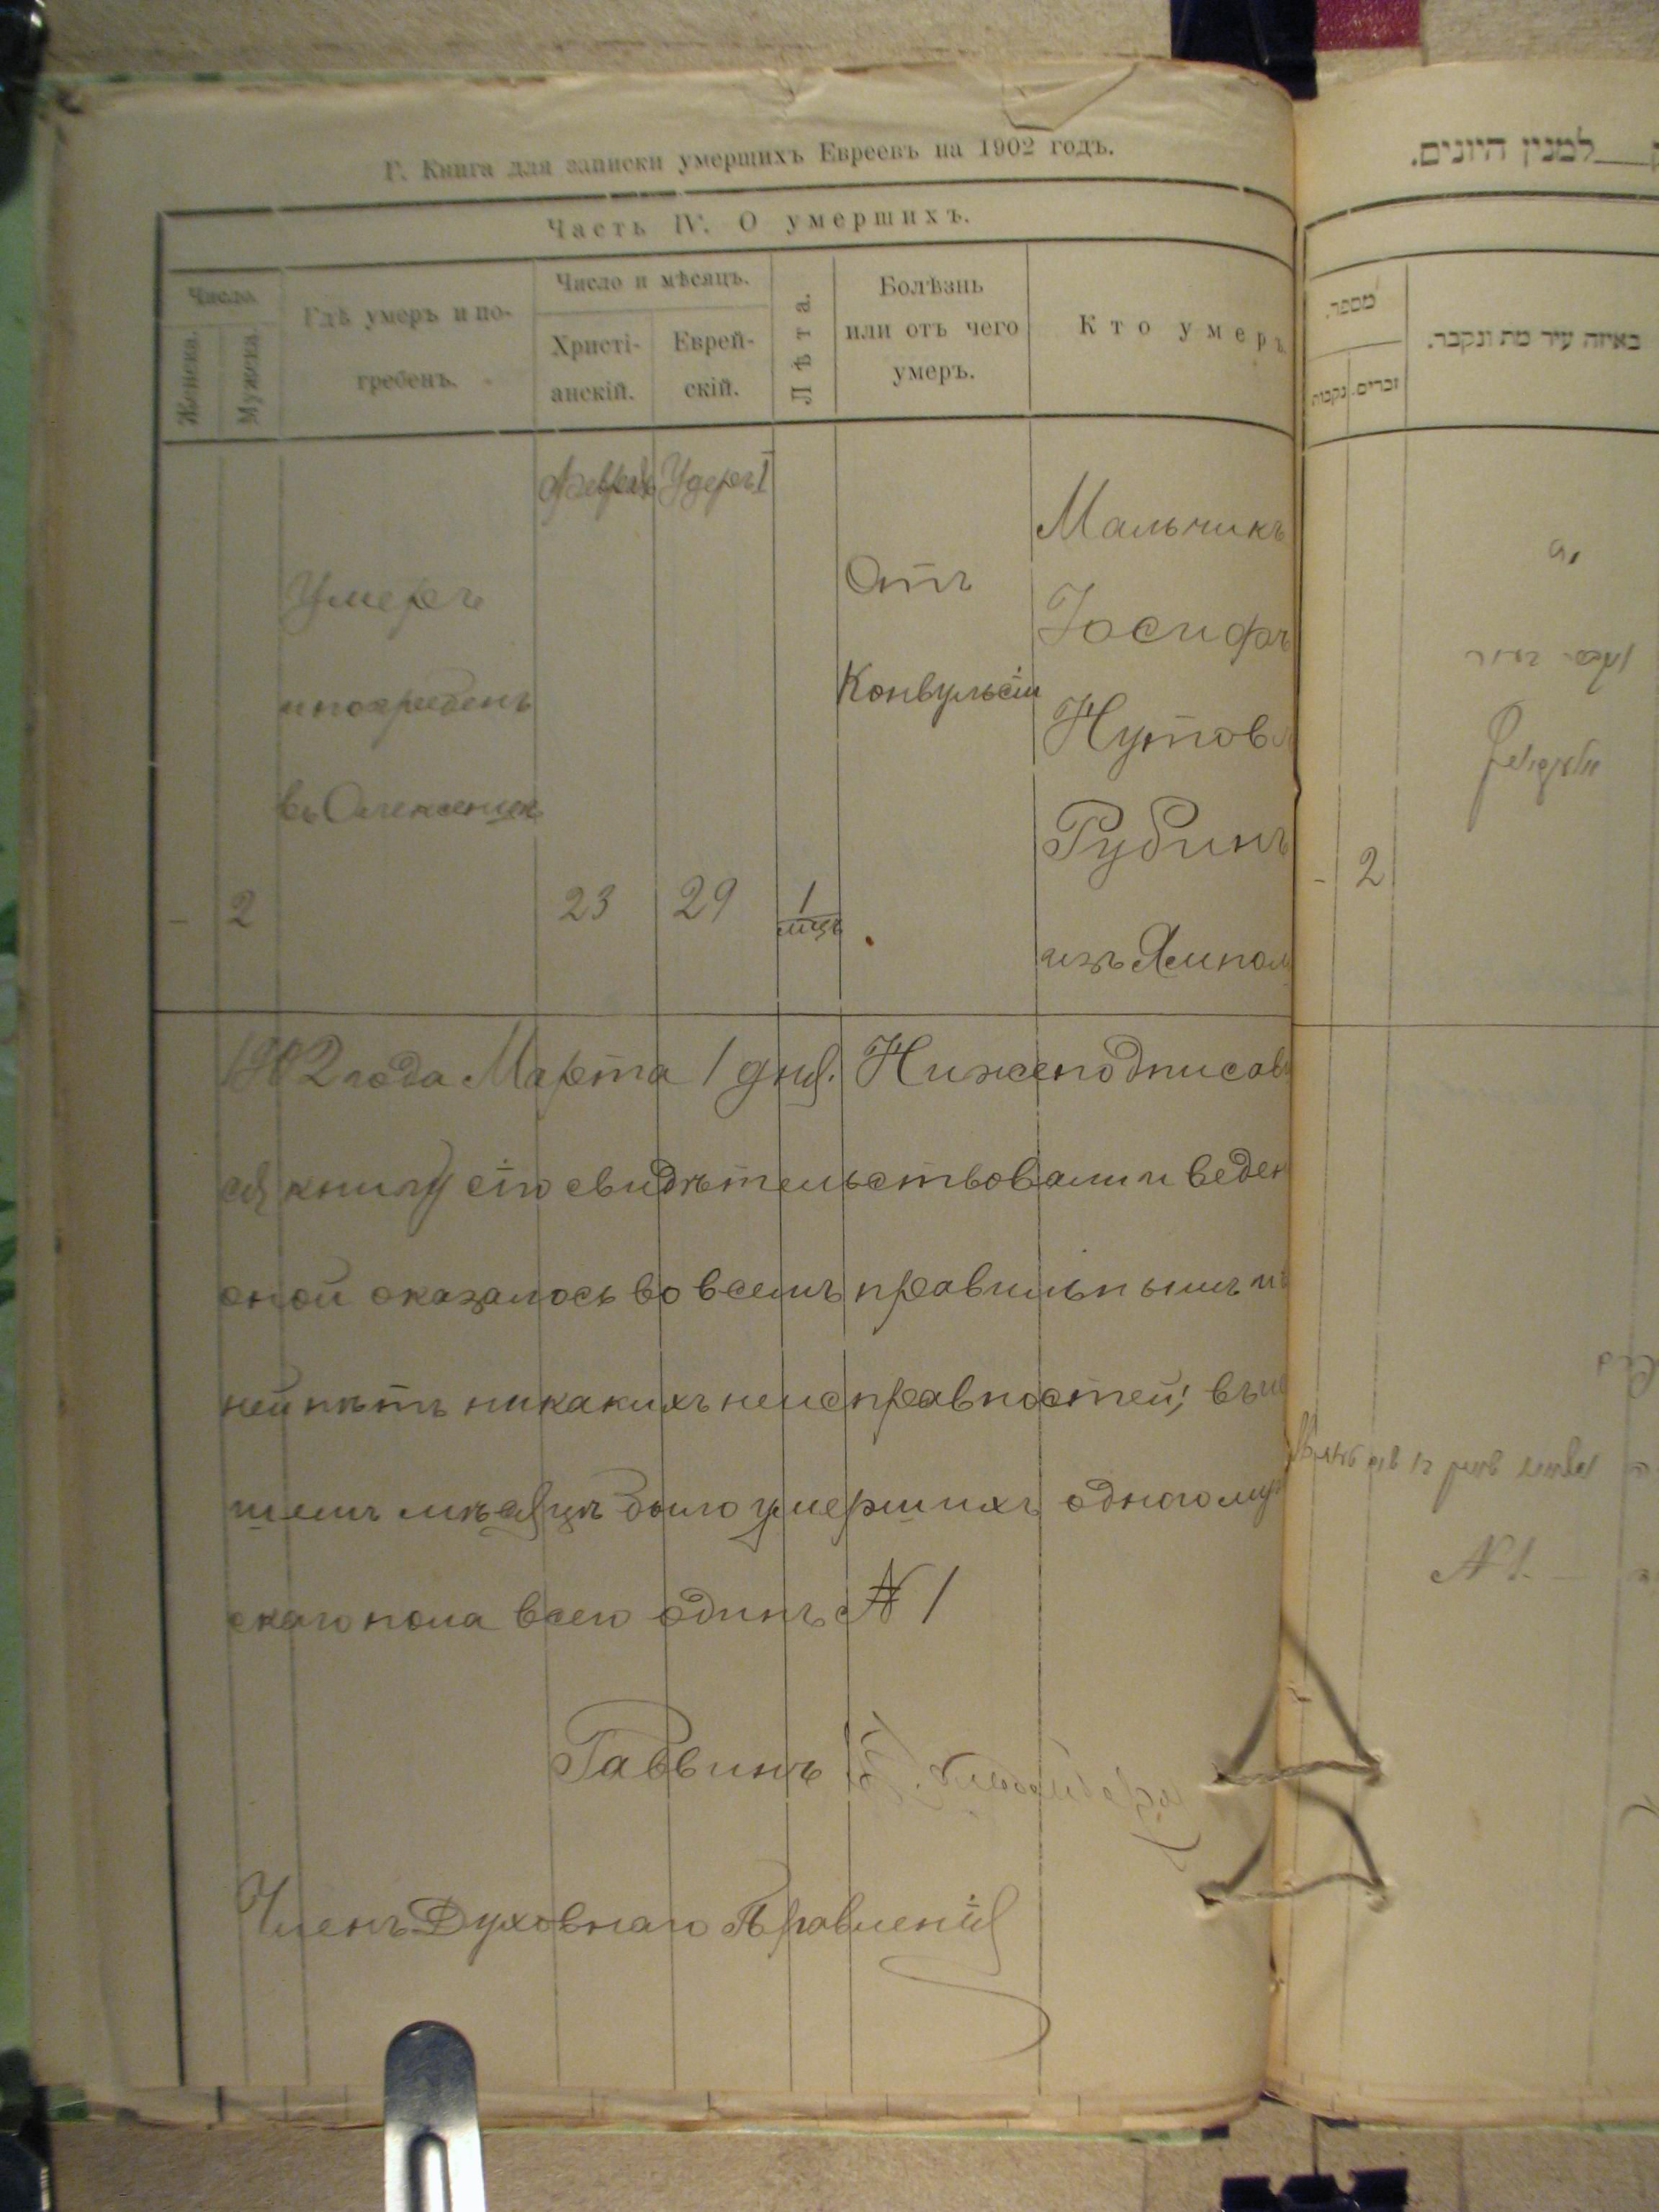 Г. Книга для записки умершихъ Евреевъ на 1902 годъ.
Часть IV. О умершихъ.
Число.
Женска.
Мужска.
Гдѣ умеръ и по-
гребенъ.
Число и мѣсяцъ.
Христі-
анскій.
Еврей-
скій.
Лѣта.
Болѣзнь
или отъ чего
умеръ.
Кто умеръ.
Февраль Удеръ I
Умеръ
и погребенъ
въ Олексенцѣ
- 2
23
29
1
мцъ
Отъ
Конвульсіи
Мальчикъ
Іосифъ
Нутов
Рубинъ
изъ Ямпол
1902 года Марта 1 дня. Нижеподписав
ся книгу сію свидѣтельствовали и веден
оной оказалось во всемъ правильнымъ и въ
ней нѣтъ никакихъ неисправностей; въ
шемъ мѣсяцѣ было умершихъ одного муж
скаго пола всего одинъ № 1
Раввинъ
Членъ Духовнаго Правленія
למנין היונים.
מספר.
זכרים.
נקבות
באיזה עיר מת ונקבר.
- 2
№ 1.